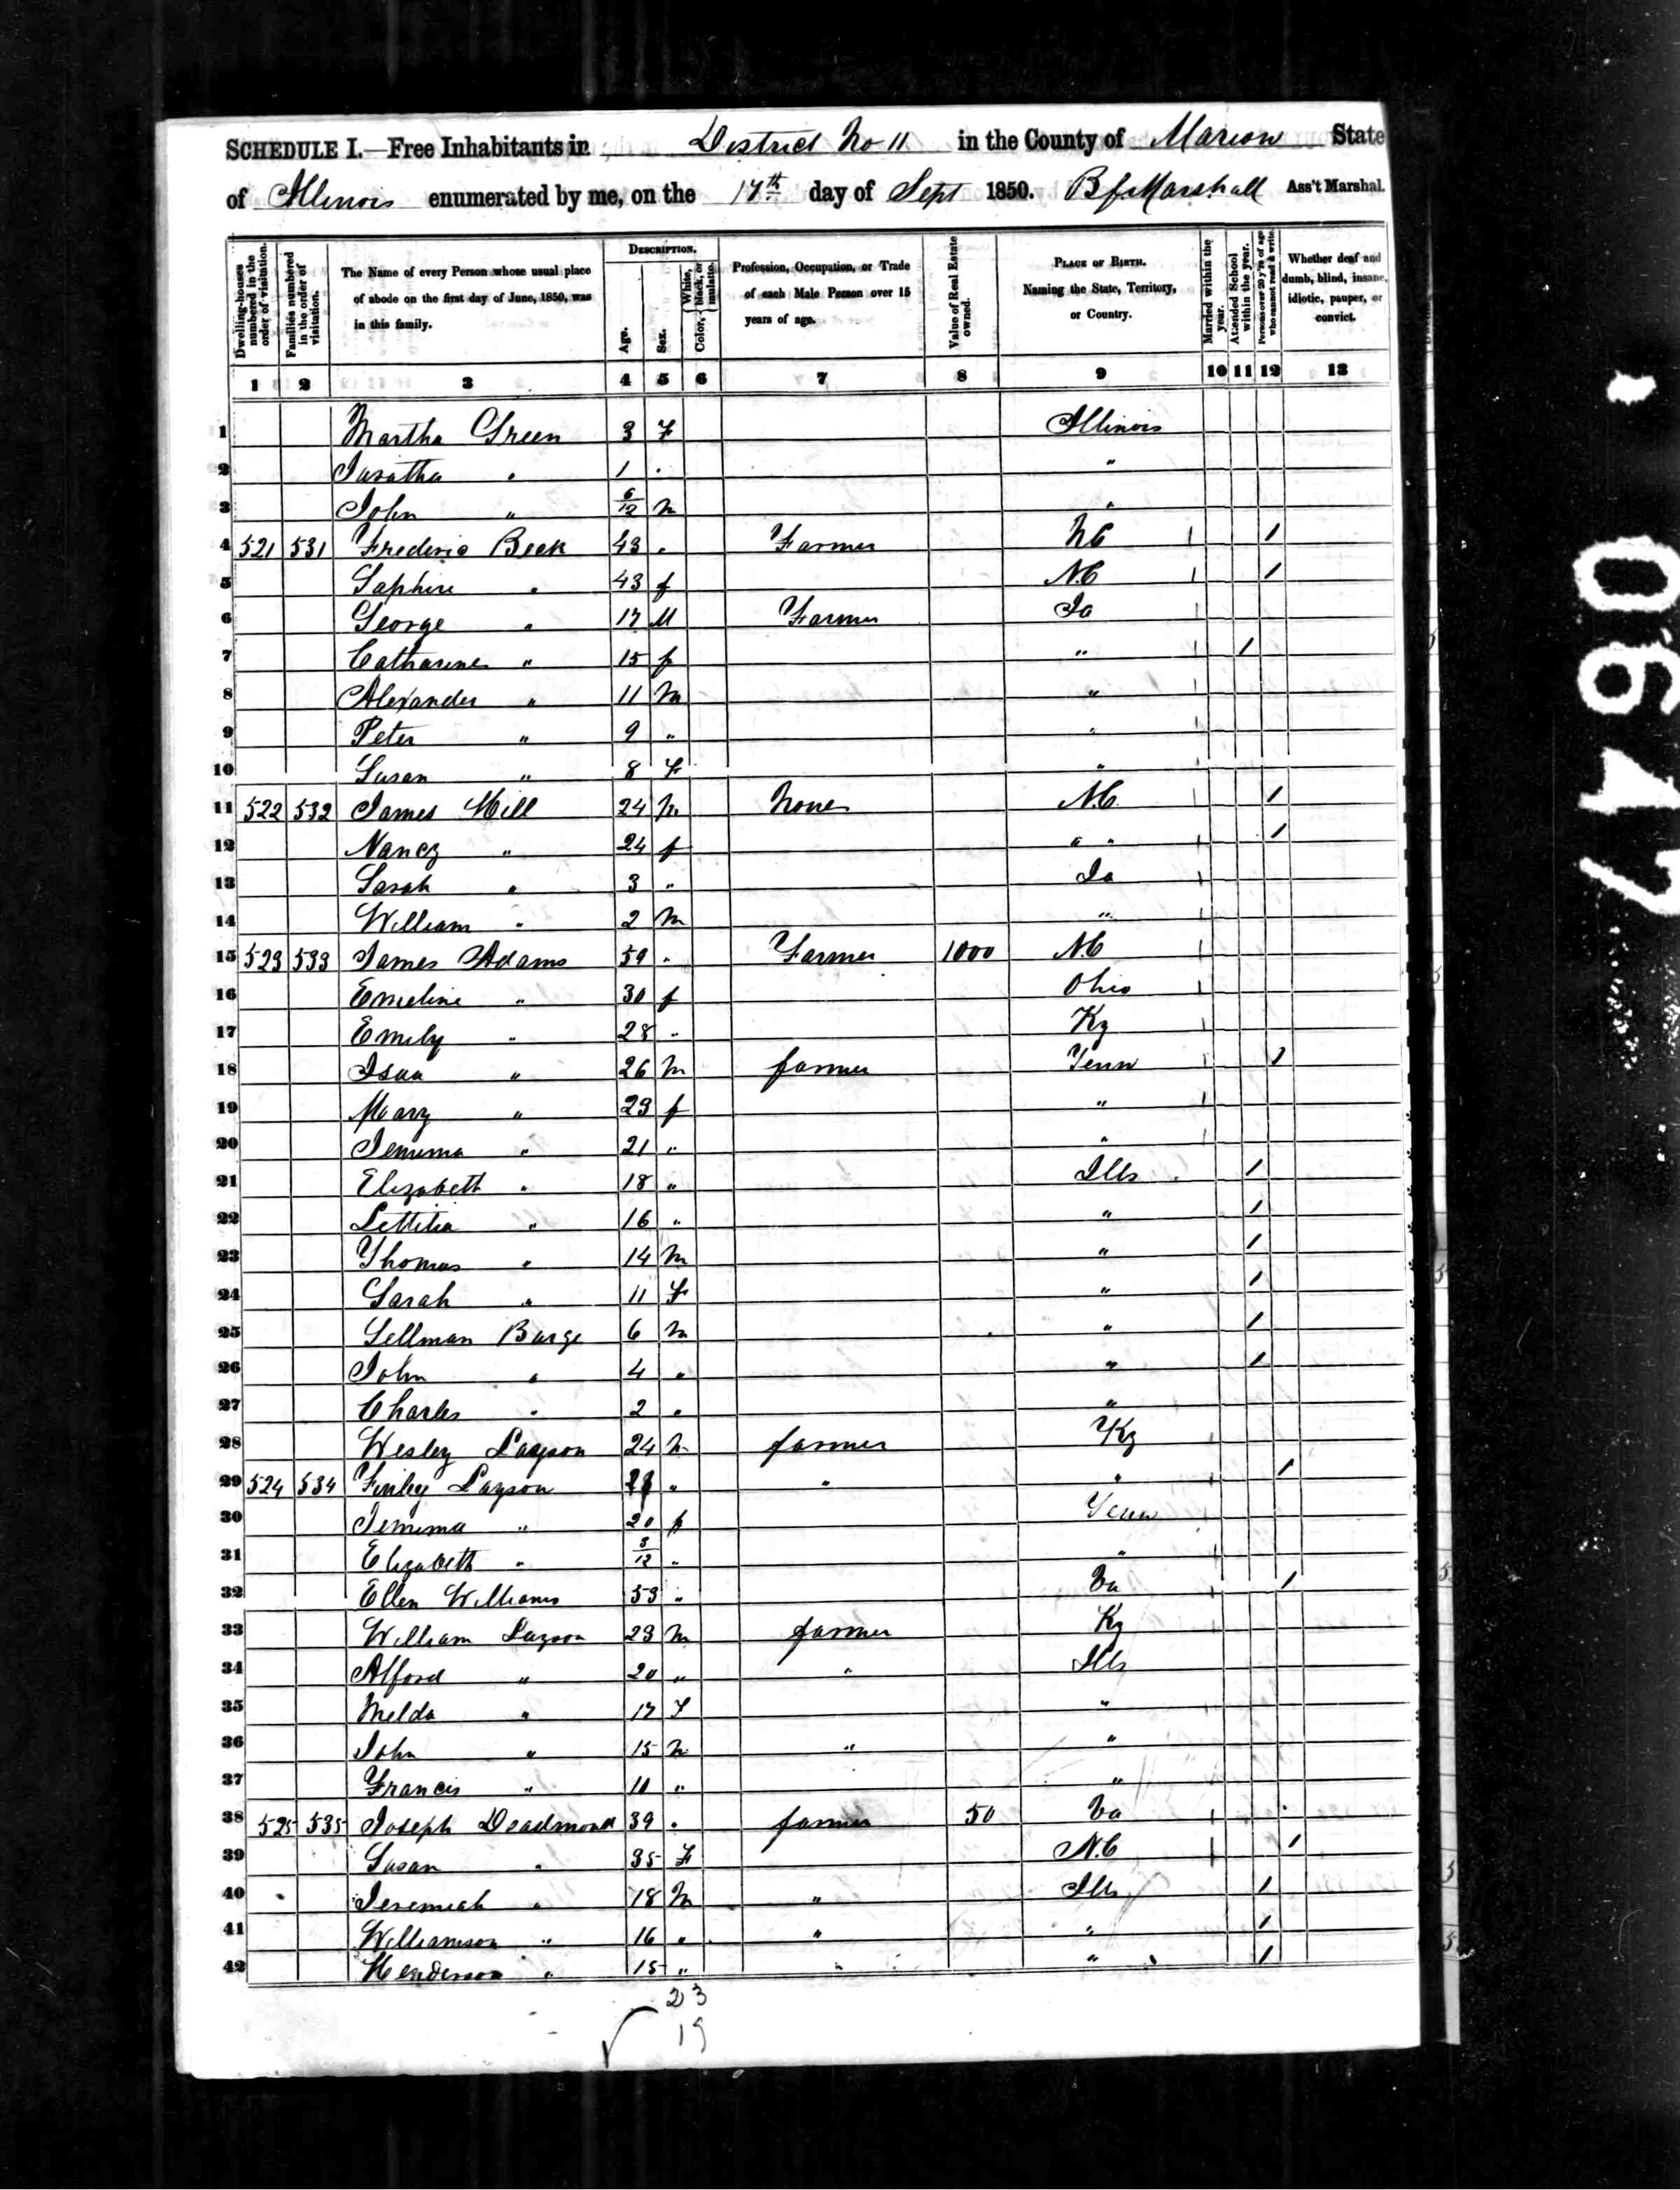 SCHEDULE I.—Free Inhabitants in District No 11 in the County of Marion State
of Illinois enumerated by me, on the 17th day of Sept 1850. B f. Marshall Ass't Marshal.
Dwelling-houses numbered in the order of visitation.
Families numbered in the order of visitation.
The Name of every Person whose usual place of abode on the first day of June, 1850, was in this family.
DESCRIPTION.
Age.
Sex.
Color, { White, black, or mulatto.
Profession, Occupation, or Trade of each Male Person over 15 years of age.
Value of Real Estate owned.
PLACE OF BIRTH. Naming the State, Territory, or Country.
Married within the year.
Attended School within the year.
Persons over 20 y'rs of age who cannot read & write.
Whether deaf and dumb, blind, insane, idiotic, pauper, or convict.
1 2 3 4 5 6 7 8 9 10 11 12 13
1 Martha Green 3 F Illinois
2 " 1 " "
3 John " 6/12 M "
4 521 531 Frederic Beck 43 " Farmer NC 1
5 Saphire " 43 f N.C 1
6 George " 17 M Farmer Ia
7 Catharine " 15 f " 1
8 Alexander " 11 M "
9 Peter " 9 " "
10 Susan " 8 F "
11 522 532 James Hill 24 M None N.C. 1
12 Nancy " 24 f " " 1
13 Sarah " 3 " Ia
14 William " 2 M "
15 523 533 James Adams 59 " Farmer 1000 N.C
16 Emeline " 30 f Ohio
17 Emily " 28 " Ky
18 " 26 M farmer Tenn 1
19 Mary " 23 f "
20 Jemima " 21 " "
21 Elizabeth " 18 " Ills 1
22 Lettitia " 16 " " 1
23 Thomas " 14 M " 1
24 Sarah " 11 F " 1
25 Sellman Barge 6 M " 1
26 John " 4 " " 1
27 Charles " 2 " "
28 Wesley Layson 24 M farmer Ky
29 524 534 Finley Layson " " " 1
30 Jemima " 20 f Tenn
31 Elizabeth " /12 " "
32 Ellen Williams 53 " Va 1
33 William Layson 23 M farmer Ky
34 Alford " 20 " " Ills
35 Melda " 17 F "
36 John " 15 M " "
37 Francis " 11 " "
38 525 535 Joseph Deadmond 39 " farmer 50 Va
39 Susan " 35 F N.C 1
40 Jeremiah " 18 M " Ills 1
41 Williamson " 16 " " " 1
42 Henderson " 15 " " " 1
23
19
0647